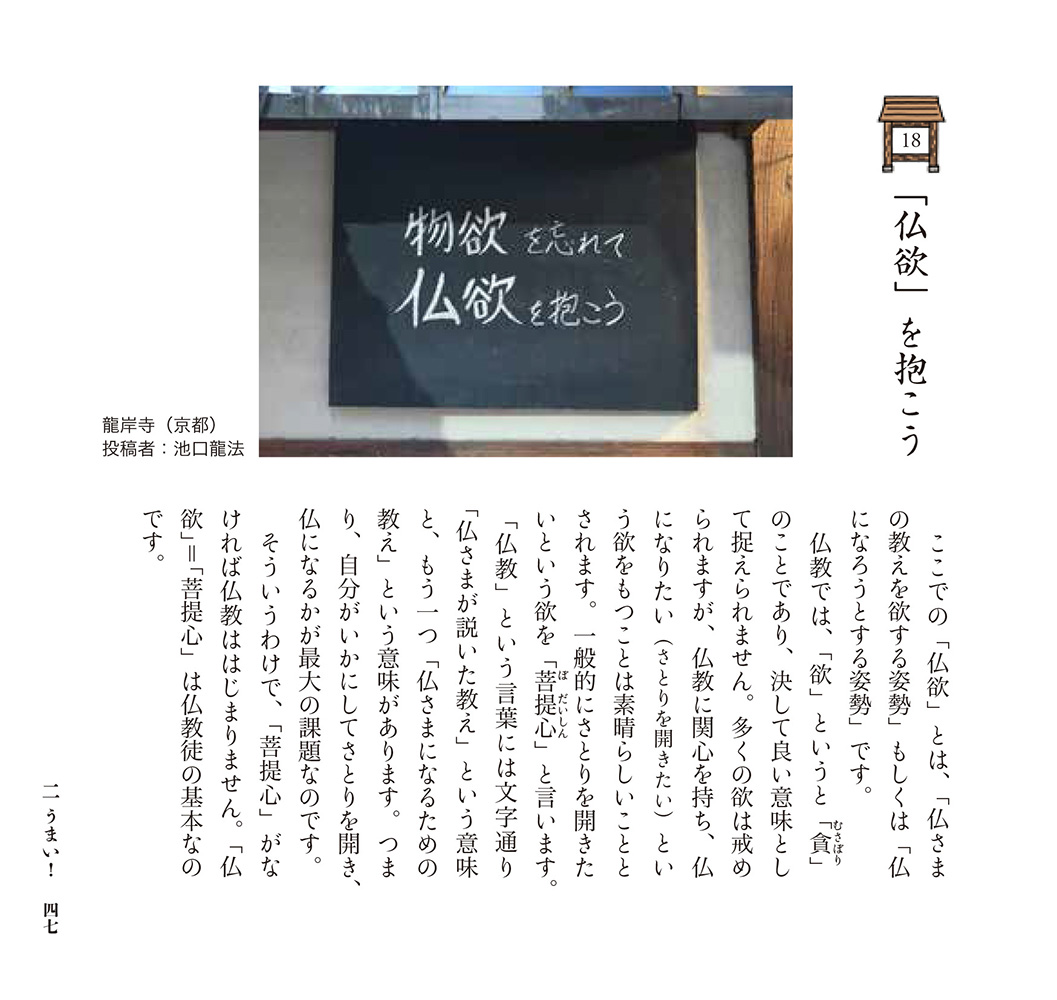 18
「仏欲」を抱こう
物欲を忘れて
仏欲を抱こう
龍岸寺（京都）
投稿者：池口龍法
ここでの「仏欲」とは、「仏さま
の教えを欲する姿勢」もしくは「仏
になろうとする姿勢」です。
仏教では、「欲」というと「貪」
むさぼり
のことであり、決して良い意味とし
て捉えられません。多くの欲は戒め
られますが、仏教に関心を持ち、仏
になりたい（さとりを開きたい）とい
う欲をもつことは素晴らしいことと
されます。一般的にさとりを開きた
いという欲を「菩提心」と言います。
ぼだいしん
「仏教」という言葉には文字通り
「仏さまが説いた教え」という意味
と、もう一つ「仏さまになるための
教え」という意味があります。つま
り、自分がいかにしてさとりを開き、
仏になるかが最大の課題なのです。
そういうわけで、「菩提心」がな
ければ仏教ははじまりません。「仏
欲」＝「菩提心」は仏教徒の基本なの
です。
二 うまい！ 四七